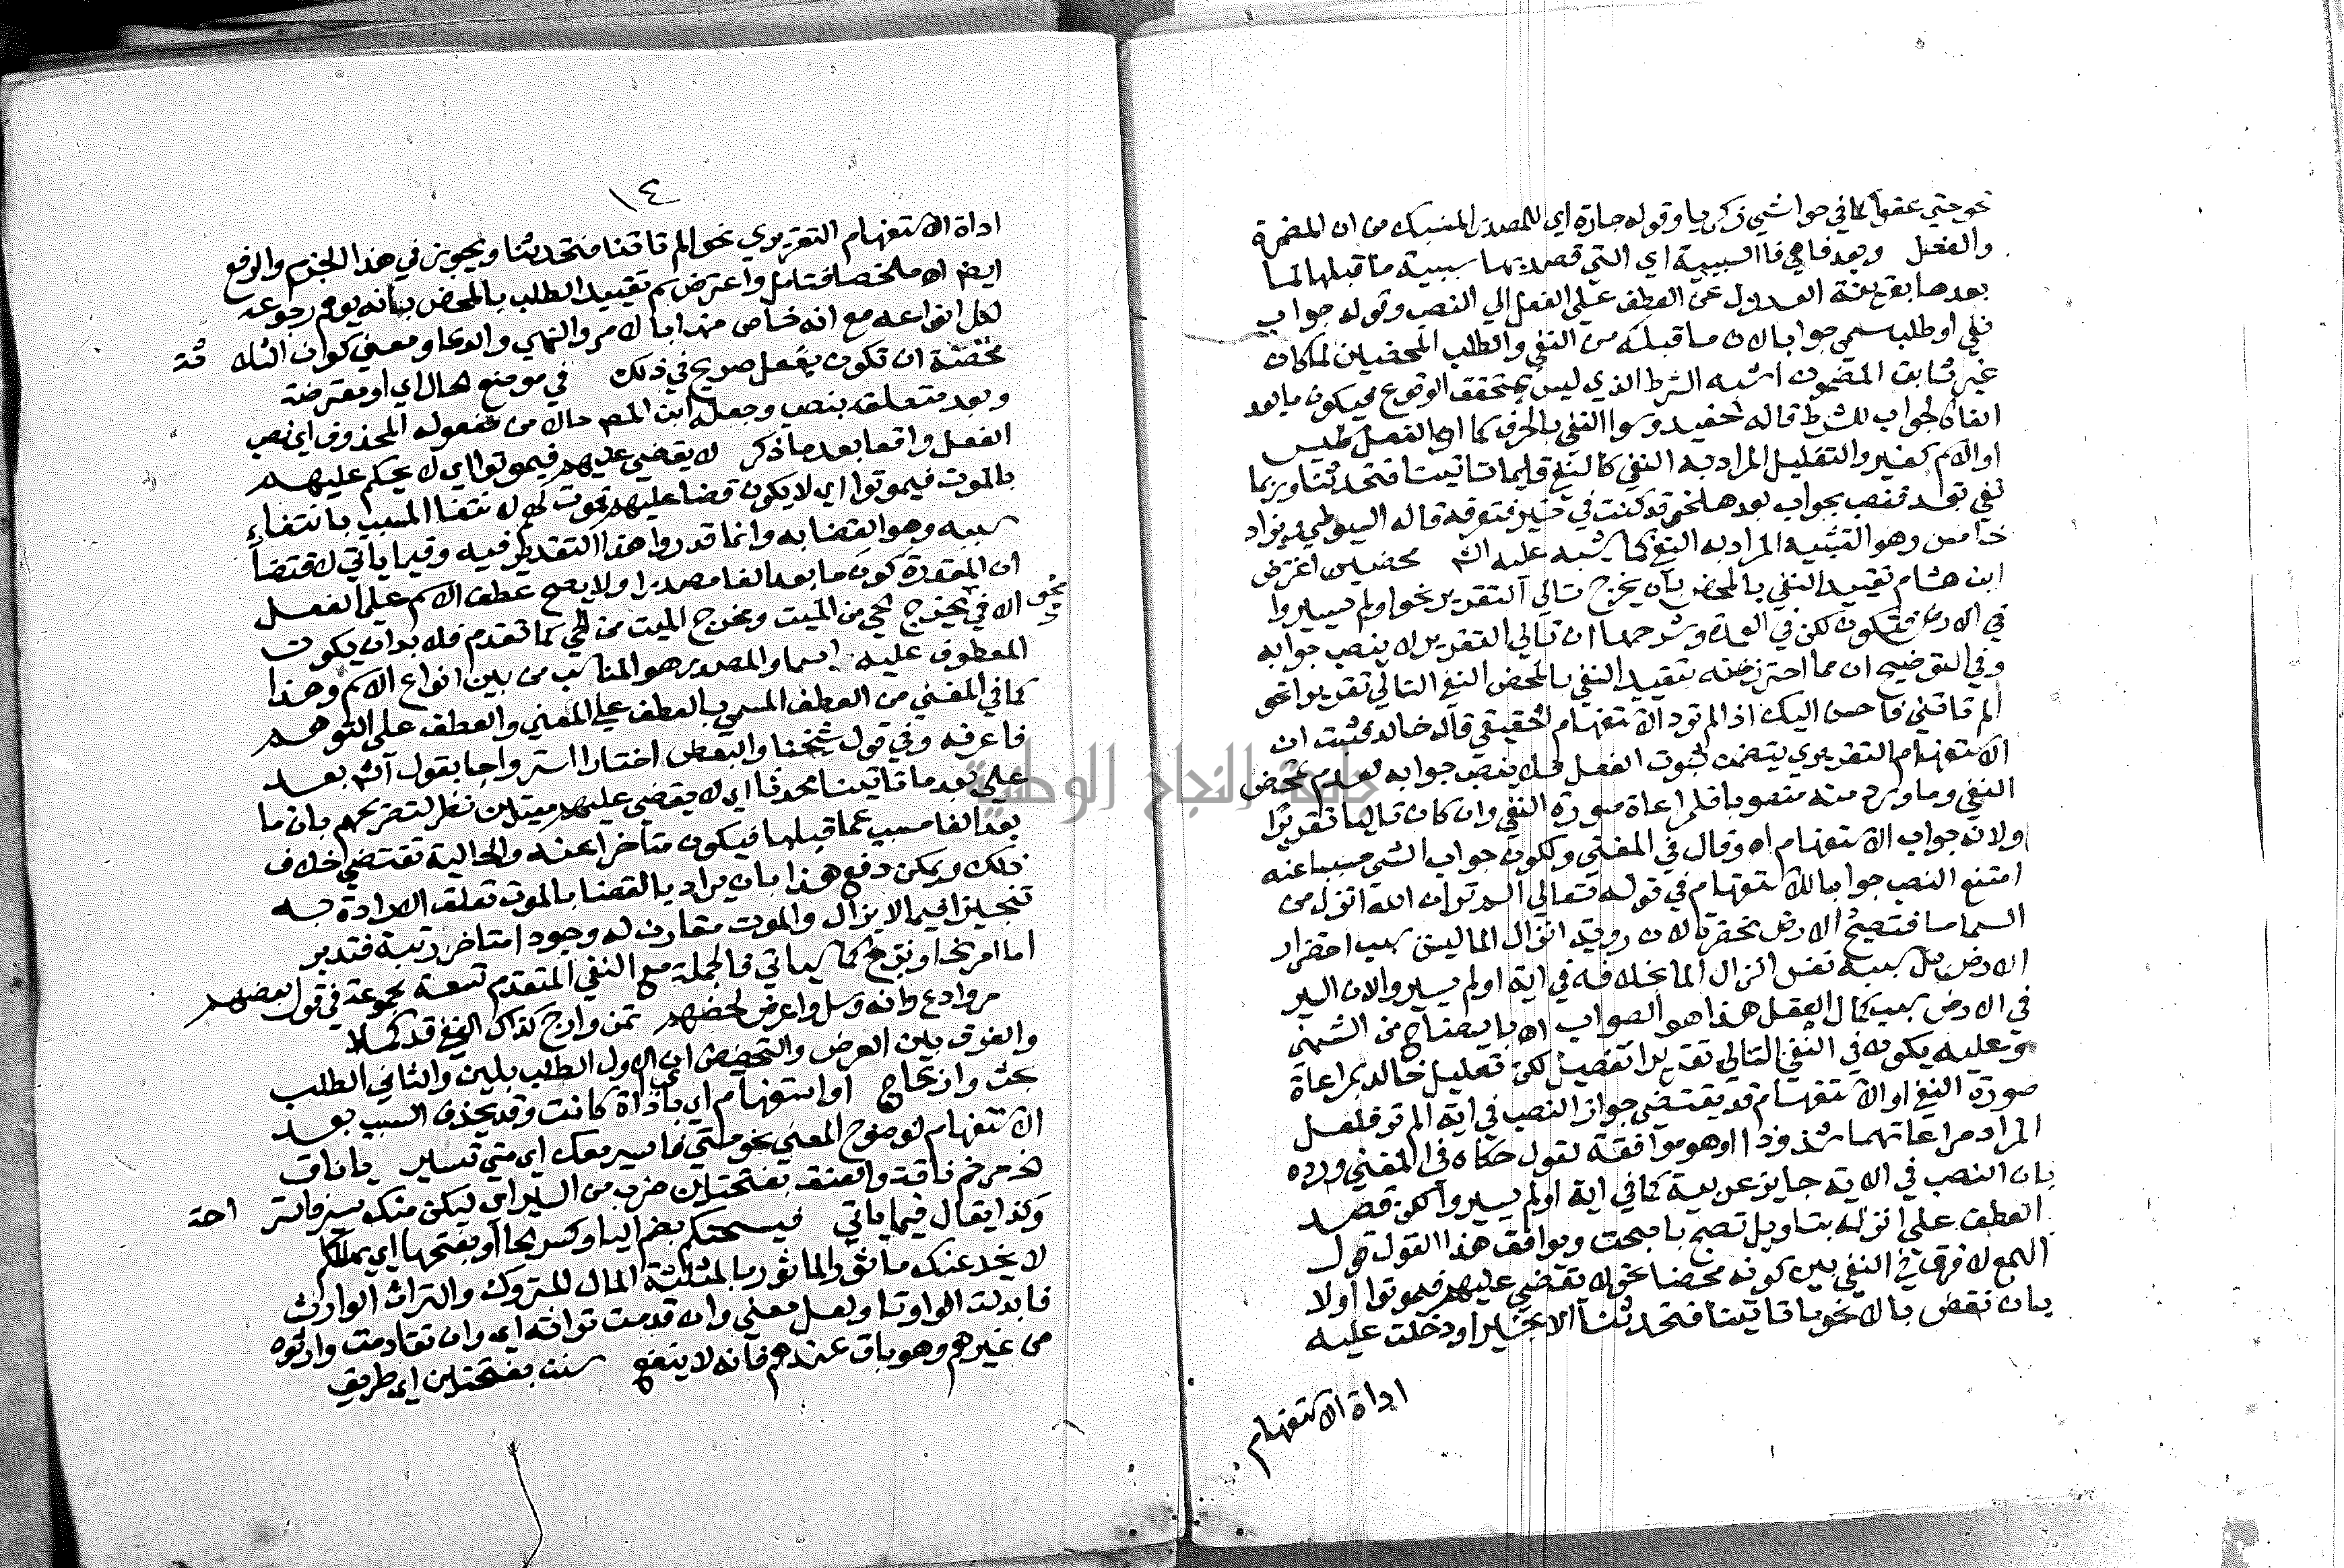 نحو جئتي عفوا كما في حواشي زكريا وقوله جارة اي للمصدر المنسبك من ان المضمرة
والفعل وبعد فا هي فا السببية اي التي قصد بها سببية ما قبلها لما
بعدها بقرينة العدول عن العطف علي الفعل الي النصب وقوله جواب
نفي او طلب سمي جوابا لان ما قبله من النفي والطلب المحضين لما كان
غير ثابت المضمون اشبه الشرط الذي ليس بمتحقق الوقوع فيكون ما بعد
الفا كالجواب للشرط قاله الحفيد وسوا النفي بالحرف كما او الفعل كليس
او الاسم كغير والتقليل المراد به النفي كالنفي قليما تاتينا فتحدثنا وربما
نفي بقد فنصب بجواب بعدها نحو قد كنت في خير فتعرفه قاله السيوطي ويزاد
خامس وهو التشبيه المراد به النفي كما نبه عليه الش محضين اعترض
ابن هشام تقييد النفي بالمحض بان يخرج تالي التقرير نحو اولم يسيروا
في الارض فتكون لكن في العمدة وشرحها ان تالي التقرير لا ينصب جوابه
وفي التوضيح ان مما احترز عنه بتقييد النفي بالمحض النفي التالي تقريرا نحو
الم تاتني فاحسن اليك اذا لم ترد الاستفهام الحقيقي قال خالد فثبت ان
الاستفهام التقريري يتضمن ثبوت الفعل فلا ينصب جوابه لعدم تمحض
النفي وما ورد منه منصوبا فلمراعاة صورة النفي وان كان تاليا تقريرا
ولانه جواب الاستفهام اه وقال في المغني ولكون جواب الشي مسببا عنه
امتنع النصب جوابا للاستفهام في قوله تعالي الم تر ان الله انزل من
السما ما فتصبح الارض مخضرة لان روية انزال الما ليس سبب اخضرار
الارض بل سببه نفس انزال الما بخلافه في اية اولم يسيروا لان السير
في الارض سبب كمال العقل هذا هو الصواب اه بايضاح من الشمني
وعليه يكون في النفي التالي تقريرا تفصيل لكن تعليل خالد بمراعاة
صورة النفي او الاستفهام قد يقتضي جواز النصب في اية الم تر فلعل
المراد مراعاتهما شذوذا او هو موافقة لقول حكاه في المغني ورده
بان النصب في الاية جايز عربية كما في اية اولم يسيروا لكن قصد
العطف علي انزل بتاويل تصبح باصبحت ويوافق هذا القول قول
الهمع لا فرق في النفي بين كونه محضا نحو لا يقضي عليهم فيموتوا اولا
بان نقض بالا نحو ما تاتينا فتحدثنا الا بخير او دخلت عليه
اداة الاستفهام
١٤
اداة الاستفهام التقريري نحو الم تاتنا فتحدثنا ويجوز في هذا الجزم والرفع
ايضا اه ملخصا فتامل واعترض سم تقييد الطلب بالمحض بانه يوهم رجوعه
لكل انواعه مع انه خاص منها بالامر والنهي والدعا ومعني كون الثلا ثة
محضة ان تكون بفعل صريح في ذلك في موضع الحال اي او معترضة
وبعد متعلق بنصب وجعله ابن المصـ حالا من مفعوله المحذوف اي نصب
الفعل واقعا بعد ما ذكر لا يقضي عليهم فيموتوا اي لا يحكم عليهم
بالموت فيموتوا اي لا يكون قضا عليهم فموت لهم لانتفا المسبب بانتفاء
سببه وهو القضا به وانما قدروا هذا التقدير فيه وفيما ياتي لاقتضا
ان المقدرة كون ما بعد الفا مصدرا ولا يصح عطف الاسم علي الفعل
الا في نحو يخرج الحي من الميت ومخرج الميت من الحي كما تقدم فلا بد ان يكون
المعطوف عليه اسما والمصدر هو المناسب من بين انواع الاسم وهذا
كما في المغني من العطف المسمي بالعطف علي المعني والعطف علي التوهم
فاعرفه وفي قول شيخنا والبعض اختارا استرواحا بقول الش بعد
علي بعد ما تاتينا محدثا اي لا يقضي عليهم ميتين نظر لتصريحهم بان ما
بعد الفا مسبب عما قبلها فيكون متاخرا عنه والحالية تقتضي خلاف
ذلك ويمكن دفع هذا بان يراد بالقضا بالموت تعلق الارادة به
تنجيزا فيما لا يزال والموت مقارن له وجودا متاخر رتبة فتدبر
اما امر نحو او نوع كما سياتي فالجملة مع النفي المتقدم تسعة مجموعة في قول بعضهم
مر وادع وانه وسل واعرض لحضهم تمن وارج كذاك النفي قد كملا
والفرق بين العرض والتحضيض ان الاول الطلب بلين والثاني الطلب
بحث وازعاج او استفهام اي باي اداة كانت وقد يحذف السبب بعد
الاستفهام لوضوح المعني نحو متي فاسير معك اي متي تسير يا ناق
فمرخم ناقة والعنق بفتحتين ضرب من السير اي ليكن منك سير فاستر احة
وكذا يقال فيما ياتي فيسحتكم بضم اليا وكسر الحا او بفتحها اي يهلككم
لا يخدعنك ماثور الماثور بالمثلثة المال المتروك والتراث الوارث
فابدلت الواو تا ولعل معني وان قدمت تراثه اي وان تقادمت وارثوه
من غيرهم وهو باق عندهم فانه لا ينفع سنن بفتحتين اي طريق